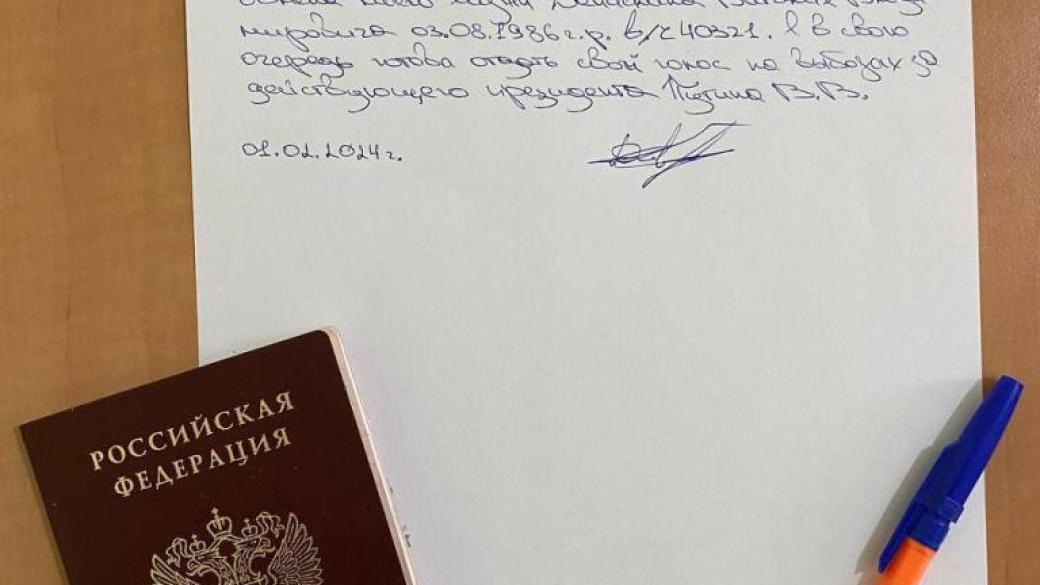 моего мужа
мировича 03.08.1986 г.р. в/ч 40321. Я в свою
очередь готова отдать свой голос на выборах за
действующего президента Путина В.В.
01.02.2024 г.
РОССИЙСКАЯ
ФЕДЕРАЦИЯ